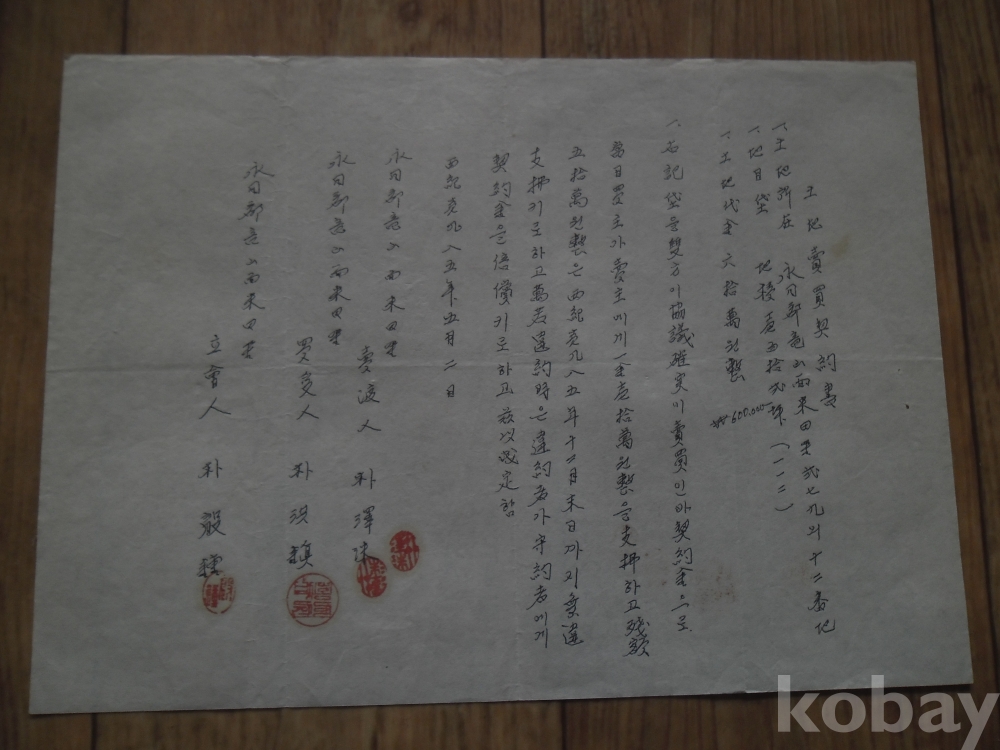 土地賣買契約書
一、土地所在 永日郡竜山面末田里 弐七九의十二番地
一、地目垈 地積壱百拾弐坪 (一一二)
一、土地代金 六拾萬원整
₩600.000-
一、右記垈을 雙方이 協議確実이 賣買인바 契約金으로
當日買主가 賣主에게 一金壱拾萬원整을 支拂하고 残額
五拾萬원整은 西紀壱九八五年十二月末日까지 無違
支拂키로하고 萬若違約時은 違約者가 守約者에게
契約金을 倍償키로하고 玆以成定함
西紀壱九八五年五月二日
永日郡竜山面末田里
賣渡人 朴澤
永日郡竜山面末田里
買受人 朴洪鎮
永日郡竜山面末田里
立會人 朴
kobay